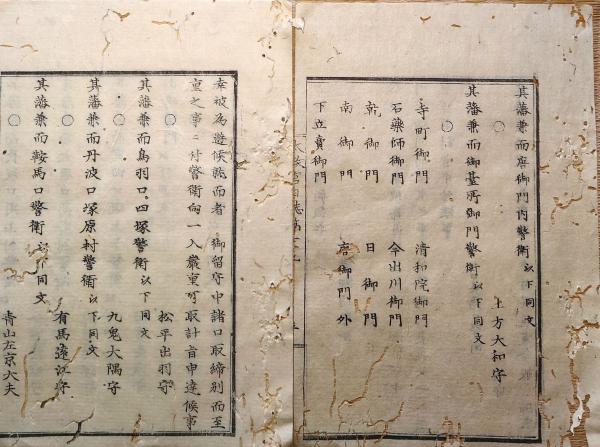 其藩兼而唐御門内警衛以下同文
土方大和守
其藩兼而御臺所御門警衛以下同文
〇
寺町御門 清和院御門
石藥師御門 今出川御門
乾御門 日御門
南御門 唐御門外
下立賣御門
幸被為遊候就而者 御留守中諸口取締別而至
重之事ニ付警衛向一入嚴重可取計旨申達候事
〇 松平出羽守
其藩兼而鳥羽口四塚警衛以下同文
〇 九鬼大隅守
其藩兼而丹波口塚原村警衛以下同文
〇 有馬遠江守
其藩兼而鞍馬口警衛以下同文
〇 青山左京大夫